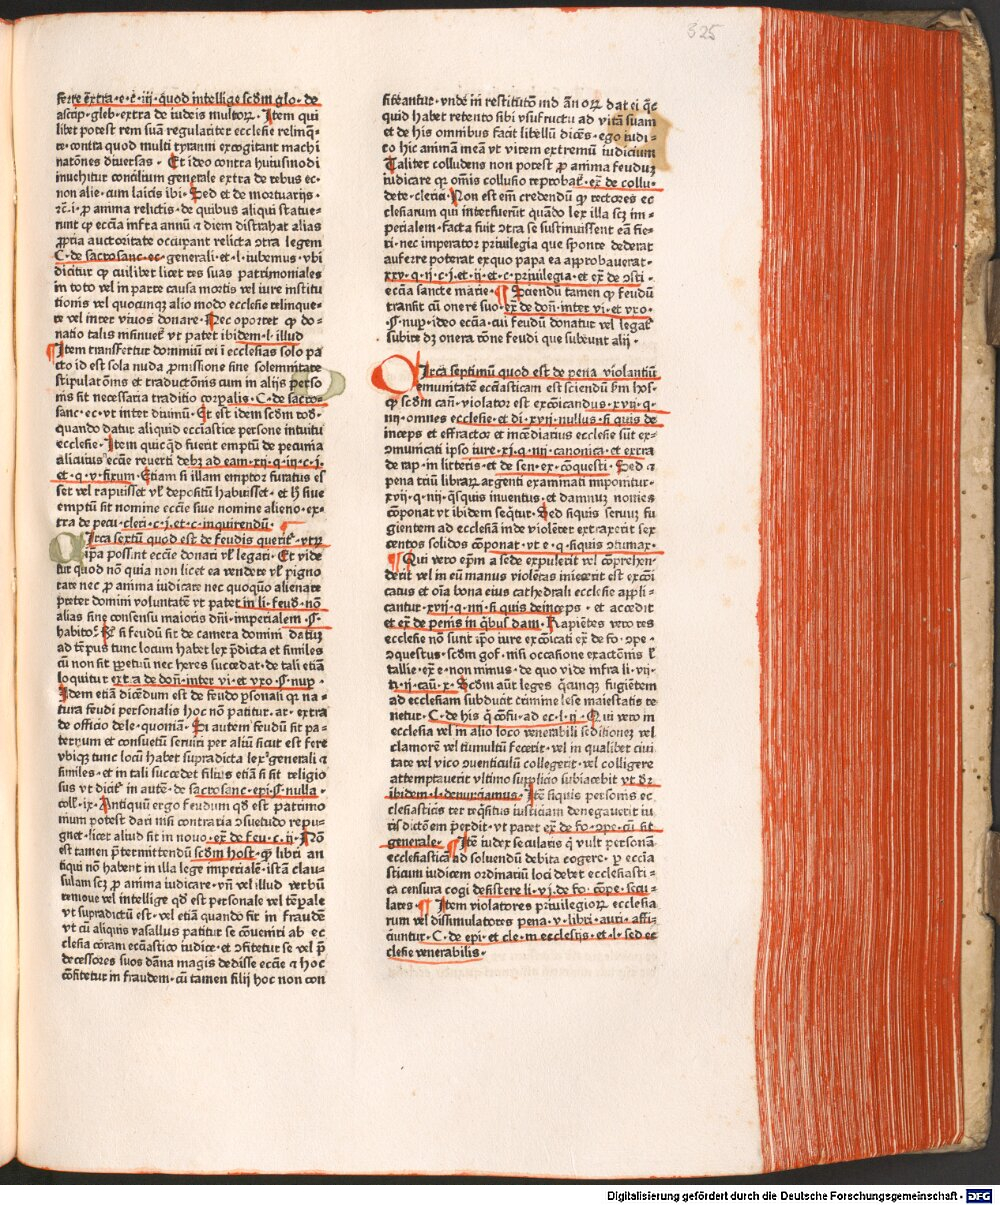 325
ferre extra·e·c̄·iij·quod intellige scd̄m glo·de
ascrip·gleb·extra de iudeis multorꝝ·Item qui
libet potest rem suā regulariter ecclesie relinq̄-
re·contra quod multi tyranni excogitant machi
natōnes diuersas·Et ideo contra huiusmodi
inuehitur concilium generale extra de rebus ec·
non alie·cum laicis ibi·Sed et de mortuarijs·
rē·i·ꝓ anima relictis·de quibus aliqui statue-
runt ꝙ ecc̄ia infra annū ⁊ diem distrahat alias
ꝓpria auctoritate occupant relicta ↄtra legem
C·de sacrosanc·ec·generali·et·l·iubemus·vbi
dicitur ꝙ cuilibet licet res suas patrimoniales
in toto vel in parte causa mortis vel iure institu
tionis vel quocunqꝫ alio modo ecclesie relinque-
re vel inter viuos donare·Nec oportet ꝙ do-
natio talis insinuet᷑ vt patet ibidem·l·illud
Item transfertur dominiū rei i ecclesias solo pa
cto id est sola nuda ꝓmissione sine solemnitate
stipulatōnis et traductōnis cum in alijs perso
nis sit necessaria traditio corꝑalis·C·de sacro-
sanc·ec·vt inter diuinū·Et est idem scd̄m rod·
quando datur aliquid ecclastice persone intuitu
ecclesie·Item quicq̄d fuerit emptū de pecunia
alicuius ecc̄ie reuerti debꝫ ad eam·xij·q·iij·c·i·
et·q·v·fixum·Etiam si illam emptor furatus es
set vel rapuisset vl̄ depositū habuisset·et hꝫ siue
emptū sit nomine ecc̄ie siue nomine alieno·ex-
tra de pecu·cleri·c·i·et·c·inquirendū·
Circa sextū quod est de feudis querit᷑·vtrꝝ
ip̄a possint ecc̄ie donari vl̄ legari·Et vide
tur quod nō quia non licet ea vendere vl̄ pigno
rare nec ꝓ anima iudicare nec quoquo alienare
preter domini voluntatē vt patet in li·feud·nō
alias sine consensu maioris dn̄i·imperialem·§·
habito·Rn̄·si feudū sit de camera domini datur
ad tēpus tunc locum habet lex p̄dicta et similes
cū non sit ꝑpetuū nec heres succedat·de tali etiā
loquitur extra de don̄·inter vi·et vxo·§·nup·
Idem etiā dicēdum est de feudo ꝑsonali qꝛ na-
tura feudi personalis hoc nō patitur·ar·extra
de officio dele·quoniā·Si autem feudū sit pa-
ternum et consuetū seruiri per aliū sicut est fere
vbiqꝫ tunc locū habet supradicta lex generali ⁊
similes·et in tali succedet filius etiā si sit religio
sus vt dicit᷑ in autē·de sacrosanc·epi·§·nulla·
coll·ix·Antiquū ergo feudum qd̄ est patrimo
nium potest dari nisi contraria ↄsuetudo repu-
gnet·licet aliud sit in nouo·ex̄·de feu·c·ij·Nō
est tamen p̄termittendū scd̄m host·ꝙ libri an
tiqui nō habent in illa lege imperiale·istā clau-
sulam scꝫ ꝓ anima iudicare·vn̄ vel illud verbū
remoue vel intellige qd̄ est personale vel tēpale
vt supradictū est·vel etiā quando fit in fraudē
vt cū aliquis vasallus patitur se cōueniri ab ec
clesia coram ecc̄astico iudice·et ↄfitetur se vel p̄
decessores suos dāna magis dedisse ecc̄ie ⁊ hoc
cōfitetur in fraudem·cū tamen filij hoc non con
fiteantur·vnde in restitutō im̄o añ orꝝ dat ei q̄c
quid habet retento sibi vsufructu ad vitā suam
et de his omnibus facit libellū dicēs·ego iudi-
co hic animam meā vt virem extremū iudicium
Taliter colludens non potest ꝓ anima feudum
iudicare qꝛ om̄is collusio reprobat᷑·ex̄ de collu·
dete·clerici·Non est em̄ credendū ꝙ rectores ec
clesiarum qui interfuerūt quādo lex illa scꝫ im-
perialem·facta fuit ↄtra se sustinuissent eā fie-
ri·nec imperator priuilegia que sponte dederat
auferre poterat exquo papa ea approbauerat·
xxv·q·ij·c·i·et·ij·et·c·priuilegia·et ex̄ de ↄsti·
ecc̄ia sancte marie·¶Sciendū tamen ꝙ feudū
transit cū onere suo·ex̄ de don̄·inter vi·et vxo·
§·nup·ideo ecc̄ia·cui feudū donatur vel legat᷑
subire dꝫ onera rōne feudi que subeunt alij·
Circa septimū quod est de pena violantiū
emunitatē ecc̄iasticam est sciendū s̄m hos·
ꝙ scd̄m cañ·violator est excōicandus·xvij·q·
iiij·omnes ecclesie·et di·xvij·nullus·si quis de
inceps et effractor et incēdiarius ecclesie sūt ex-
ↄmunicati ipso iure·xi·q·iij·canonica·et extra
de rap·in litteris·et de sen·ex·cōquesti·Sed ⁊
pena triū librarꝝ argenti examinati imponitur·
xvij·q·iiij·q̄squis inuentus·et damnuꝫ nouies
cōponat vt ibidem seq̄tur·Sed siquis seruuꝫ fu
gientem ad ecclesiā inde violēter extraxerit sex
centos solidos cōponat·vt e·q·siquis ↄtumax·
¶Qui vero ep̄m a sede expulerit vel cōprehen
derit vel in eū manus violētas iniecerit est excōi
catus et oīa bona eius cathedrali ecclesie appli-
cantur·xvij·q·iiij·si quis deinceps·et accedit
et ex̄ de penis in q̄bus dam·Rapientes vero res
ecclesie nō sunt ip̄o iure excōicati ex̄ de fo·ↄpe·
ↄquestus·scd̄m gof·nisi occasione exactōnis l̄
tallie·ex̄·e·non minus·de quo vide infra li·vij·
ti·ij·cau·x·Scd̄m aūt leges q̄cunqꝫ fugientem
ad ecclesiam subducit crimine lese maiestatis te
netur·C·de his q̄ cōfu·ad ec·l·ij·Qui vero in
ecclesia vel in alio loco venerabili seditionez vel
clamorē vel tumultū fecerit·vel in qualibet ciui
tate vel vico ↄuenticulū collegerit·vel colligere
attemptauerit vltimo supplicio subiacebit vt dꝛ
ibidem·l·denunciamus·Itē siquis personis ec
clesiasticis ter req̄situs iusticiam denegauerit iu
risdictōem ꝑdit·vt patet ex̄ de fo·ↄpe·cū sit
generale·¶Itē iudex secularis q̄ vult personā
ecclesiasticā ad soluendū debita cogere·ꝑ eccia
sticum iudicem ordinariū loci debet ecclesiasti-
ca censura cogi desistere li·vj·de fo·cōpe·secu-
lares·¶Item violatores priuilegiorꝝ ecclesia
rum vel dissimulatores pena·v·libri·auri·affi-
ciuntur·C·de epi·et cle·m ecclesijs·et·l·sed ec
clesie venerabilis·
Digitalisierung gefördert durch die Deutsche Forschungsgemeinschaft - DFG